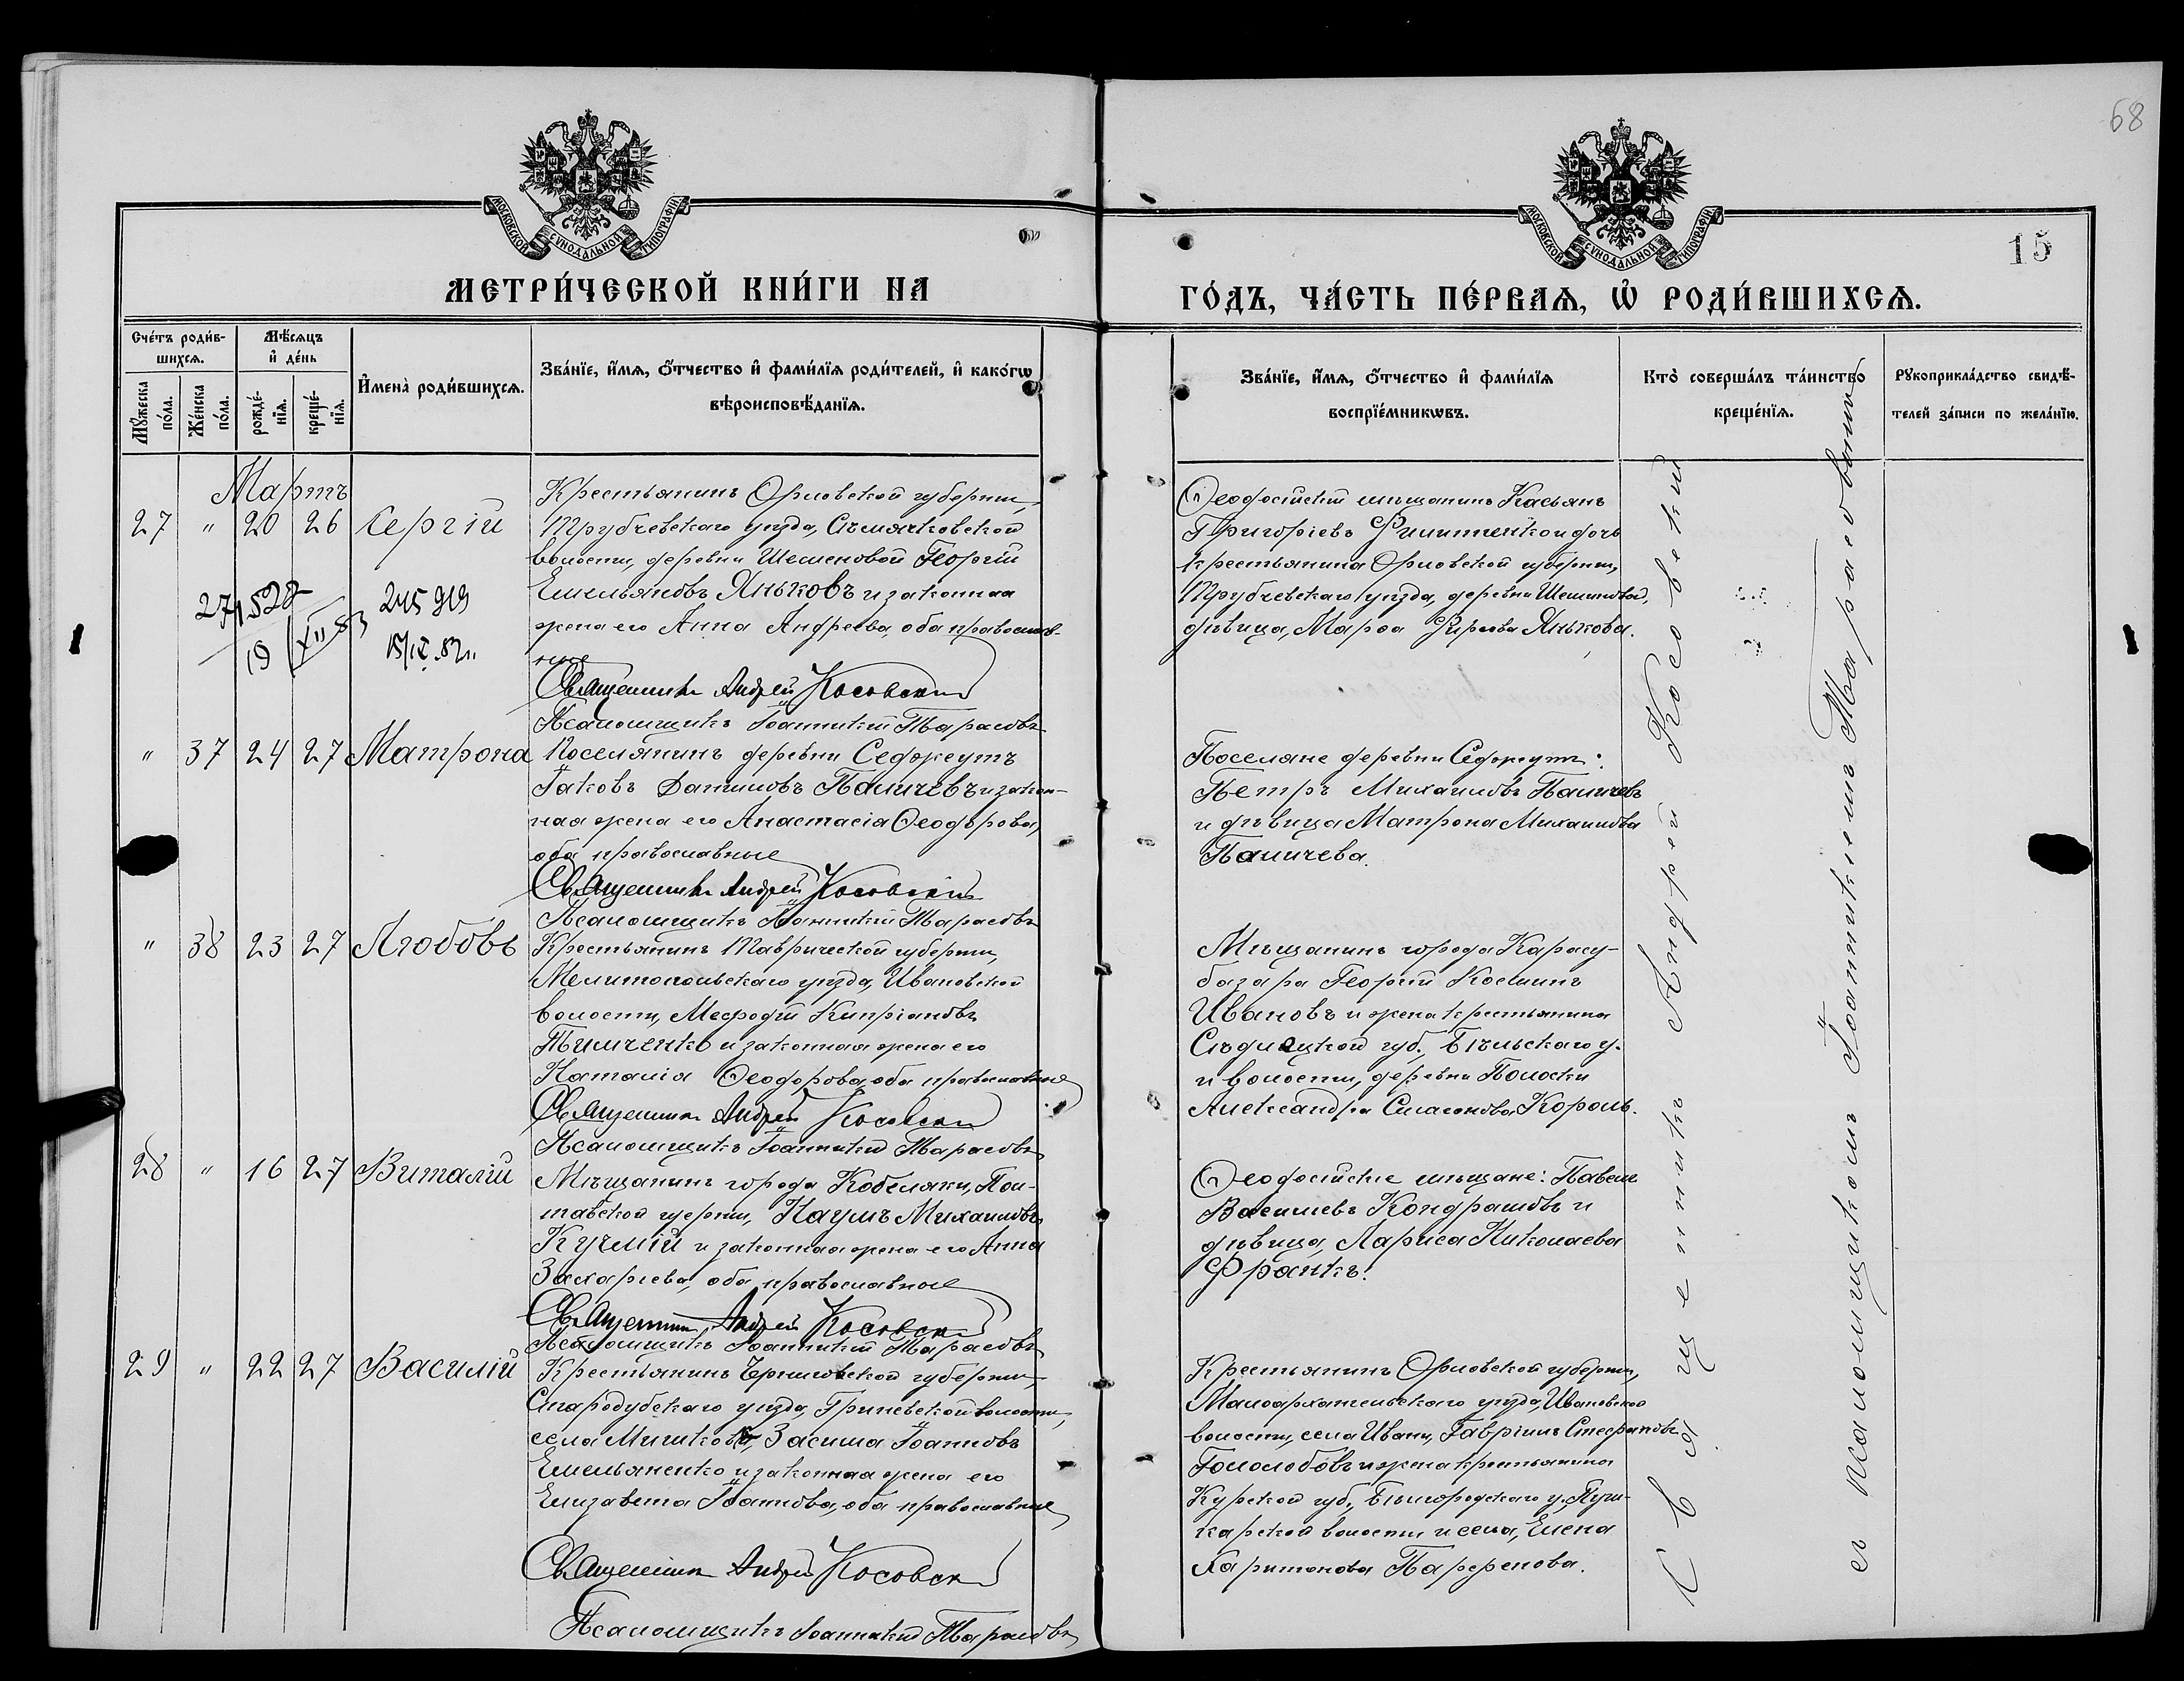 68
15
МОСКОВСКОЙ СѴНОДАЛЬНОЙ ТИПОГРАФІИ
МОСКОВСКОЙ СѴНОДАЛЬНОЙ ТИПОГРАФІИ
МЕТРИ́ЧЕСКОЙ КНИ́ГИ НА
ГО́ДЪ, ЧА́СТЬ ПЕ́РВАѦ, Ѡ҆ РОДИ́ВШИХСѦ.
Сче́тъ роди́в-
шихсѧ.
Мѣ́сяцъ
и҆ де́нь
Мꙋ́жеска по́ла.
Же́нска по́ла.
рожде́-нїѧ.
креще́-нїѧ.
И҆мена̀ роди́вшихсѧ.
Зва́нїе, и҆́мѧ, ѻ҆́тчество и҆ фами́лїѧ роди́телей, и҆ како́гѡ
вѣроисповѣ́данїѧ.
Зва́нїе, и҆́мѧ, ѻ҆́тчество и҆ фами́лїѧ
воспрїе́мникѡвъ.
Кто̀ соверша́лъ та́инство
креще́нїѧ.
Рꙋкоприкла́дство свидѣ́-
телей за́писи по жела́нїю.
Мартъ
27 " 20 26 Сергій
Крестьянинъ Орловской губерніи,
Трубчевскаго уѣзда, Сѣмячковской
волости, деревни Шешеновой Георгій
Емельяновъ Яньковъ и законная
жена его Анна Андреева, оба православ-
ные
Священникъ Андрей Косовскій
Псаломщикъ Іоанникій Тарасовъ
271528
19/XII 83
245919
15/IX.82г.
Ѳеодосійскій мѣщанинъ Касьянъ
Григоріевъ Филиппенко и дочь
крестьянина Орловской губерніи,
Трубчевскаго уѣзда, деревни Шешеновой,
дѣвица, Марѳа Фирсова Янькова.
" 37 24 27 Матрона
Поселянинъ деревни Седжеутъ
Іаковъ Даниловъ Паличевъ и закон-
ная жена его Анастасія Ѳеодорова,
оба православные
Священникъ Андрей Косовскій
Псаломщикъ Іоанникій Тарасовъ
Поселяне деревни Седжеутъ:
Петръ Михаиловъ Паличевъ
и дѣвица Матрона Михаилова
Паличева.
" 38 23 27 Любовь
Крестьянинъ Таврической губерніи,
Мелитопольскаго уѣзда, Ивановской
волости, Меѳодій Кипріановъ
Тимченко и законная жена его
Наталія Ѳеодорова, оба православные
Священникъ Андрей Косовскій
Псаломщикъ Іоанникій Тарасовъ
Мѣщанинъ города Карасу-
базара Георгій Косминъ
Ивановъ и жена крестьянина
Сѣдлецкой губ. Бѣльскаго у.
и волости, деревни Полоски
Александра Король.
28 " 16 27 Виталій
Мѣщанинъ города Кобеляки, Пол-
тавской губерніи, Наумъ Михаиловъ
Кучмій и законная жена его Анна
Захаріева, оба православные
Священникъ Андрей Косовскій
Псаломщикъ Іоанникій Тарасовъ
Ѳеодосійскіе мѣщане: Павелъ
Васильевъ Кондрашовъ и
дѣвица, Лариса Николаева
Франкъ.
29 " 22 27 Василій
Крестьянинъ Черниговской губерніи,
Стародубскаго уѣзда, Гриневской волости,
села Мишковъ, Засима Іоанновъ
Емельяненко и законная жена его
Елизавета Іоаннова, оба православные
Священникъ Андрей Косовскій
Псаломщикъ Іоанникій Тарасовъ
Крестьянинъ Орловской губерніи,
Малоархангельскаго уѣзда, Ивановской
волости, села Ивани, Гавріилъ Стефановъ
Гололобовъ и жена крестьянина
Курской губ., Бѣлгородскаго у. Пуш-
карской волости и села, Елена
Харитонова Парфенова.
Священникъ Андрей Косовскій
съ псаломщикомъ Іоанникіемъ Тарасовымъ